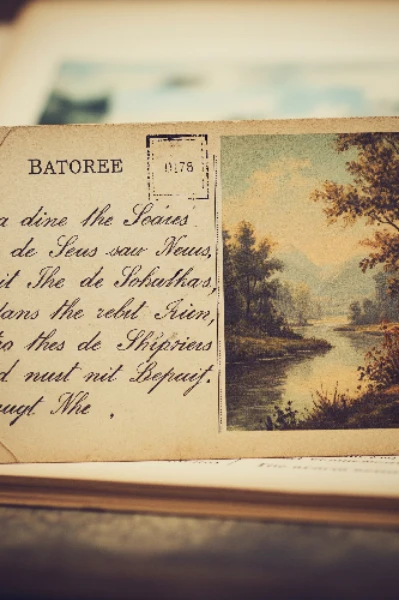 BATOREE
0178
a dine the Soares
de Seus saw News,
it The de Sohatkas,
dans the rebit Iiun,
thes de Shipriers
d nust nit Bepaif.
ougt Nhe ,